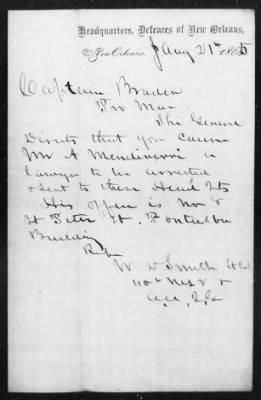 Headquarters, Defences of New Orleans,
New Orleans, Jany 21st 1865
Captain Braden
Pro Mar
The General
Directs that you cause
Mr A Mendiverri a
lawyer to be arrested
& sent to these Head Qts
His office is No
St Peter St. Pontalba
Building
W W Smith
110th